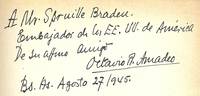 A Mr. Spruille Braden.
Embajador de los EE. UU. de América
De su afmo amigo
Octavio R. Amadeo
Bs. As. Agosto 27/1945.